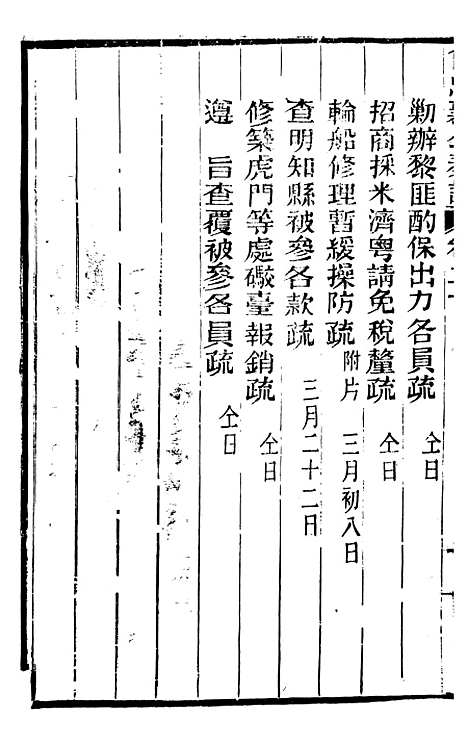 勦辦黎匪酌保出力各員疏 仝日
招商採米濟粤請免稅釐疏 仝日
輪船修理暫緩操防疏 附片 三月初八日
查明知縣被參各款疏 三月二十二日
修築虎門等處礮臺報銷疏 仝日
遵 旨查覆被參各員疏 仝日